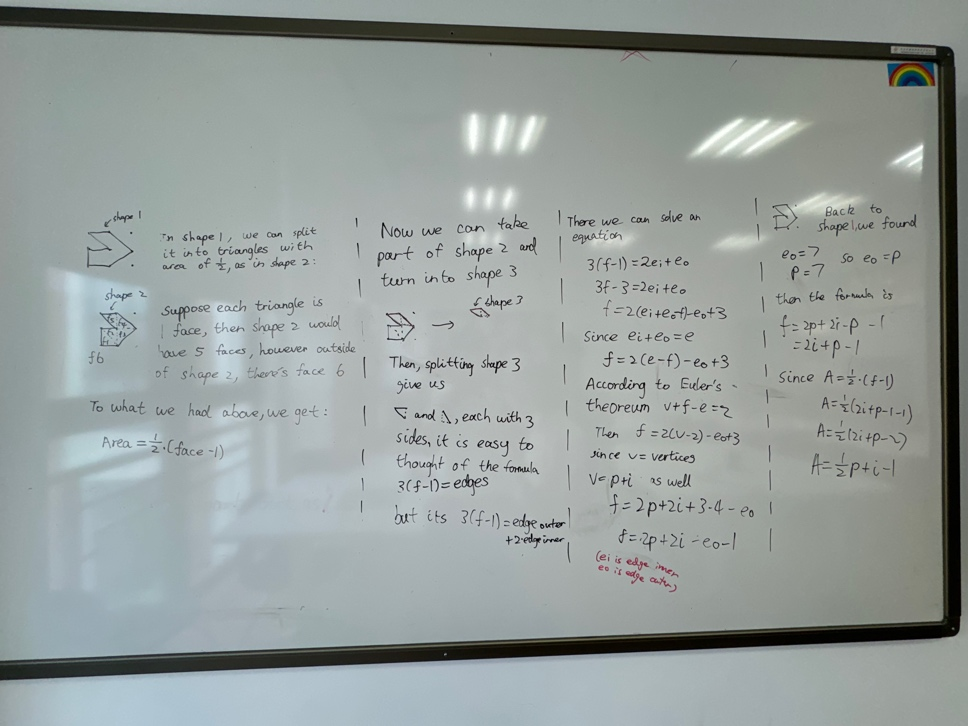 shape 1
In shape 1, we can split
it into triangles with
area of ½, as in shape 2:
shape 2
f6
Suppose each triangle is
1 face, then shape 2 would
have 5 faces, however outside
of shape 2, there's face 6
To what we had above, we get:
Area = ½·(face -1)
Now we can take
part of shape 2 and
turn into shape 3
shape 3
Then, splitting shape 3
give us
and , each with 3
sides, it is easy to
thought of the formula
3(f-1)=edges
but its 3(f-1)=edge outer
+2·edge inner
There we can solve an
equation
3(f-1)=2ei+eo
3f-3=2ei+eo
f=2(ei+eo-f)-eo+3
Since ei+eo=e
f=2(e-f)-eo+3
According to Euler's
theoreum v+f-e=2
Then f=2(v-2)-eo+3
since v=vertices
V=p+i as well
f=2p+2i+3-4-eo
f=2p+2i-eo-1
(ei is edge inner
eo is edge outer)
Back to
shape 1, we found
eo=7
p=7 so eo=p
then the formula is
f=2p+2i-p-1
=2i+p-1
since A=½·(f-1)
A=½(2i+p-1-1)
A=½(2i+p-2)
A=½p+i-1